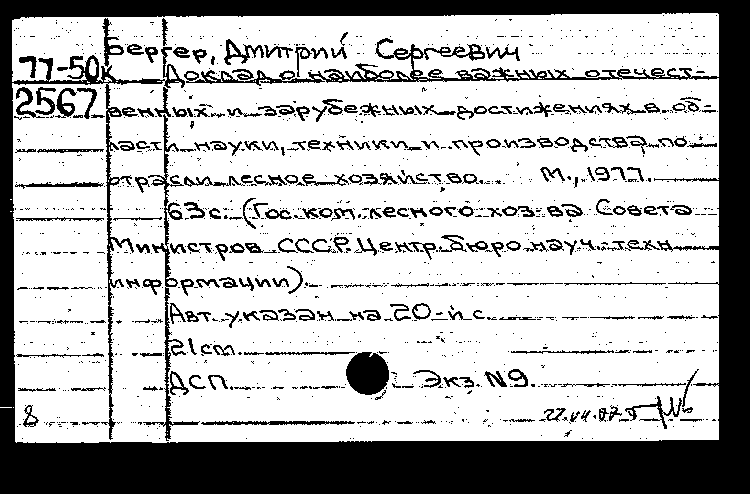 Бергер, Дмитрий Сергеевич
77-50к Доклад о наиболее важных отечест-
2567 венных и зарубежных достижениях в об-
ласти науки, техники и производства по
отрасли лесное хозяйство. М., 1977.
63 с. (Гос. ком. лесного хоз-ва Совета
Министров СССР. Центр. бюро науч.-техн.
информации).
Авт. указан на 20-й с.
21 cm.
ДСП. Экз. N9.
8